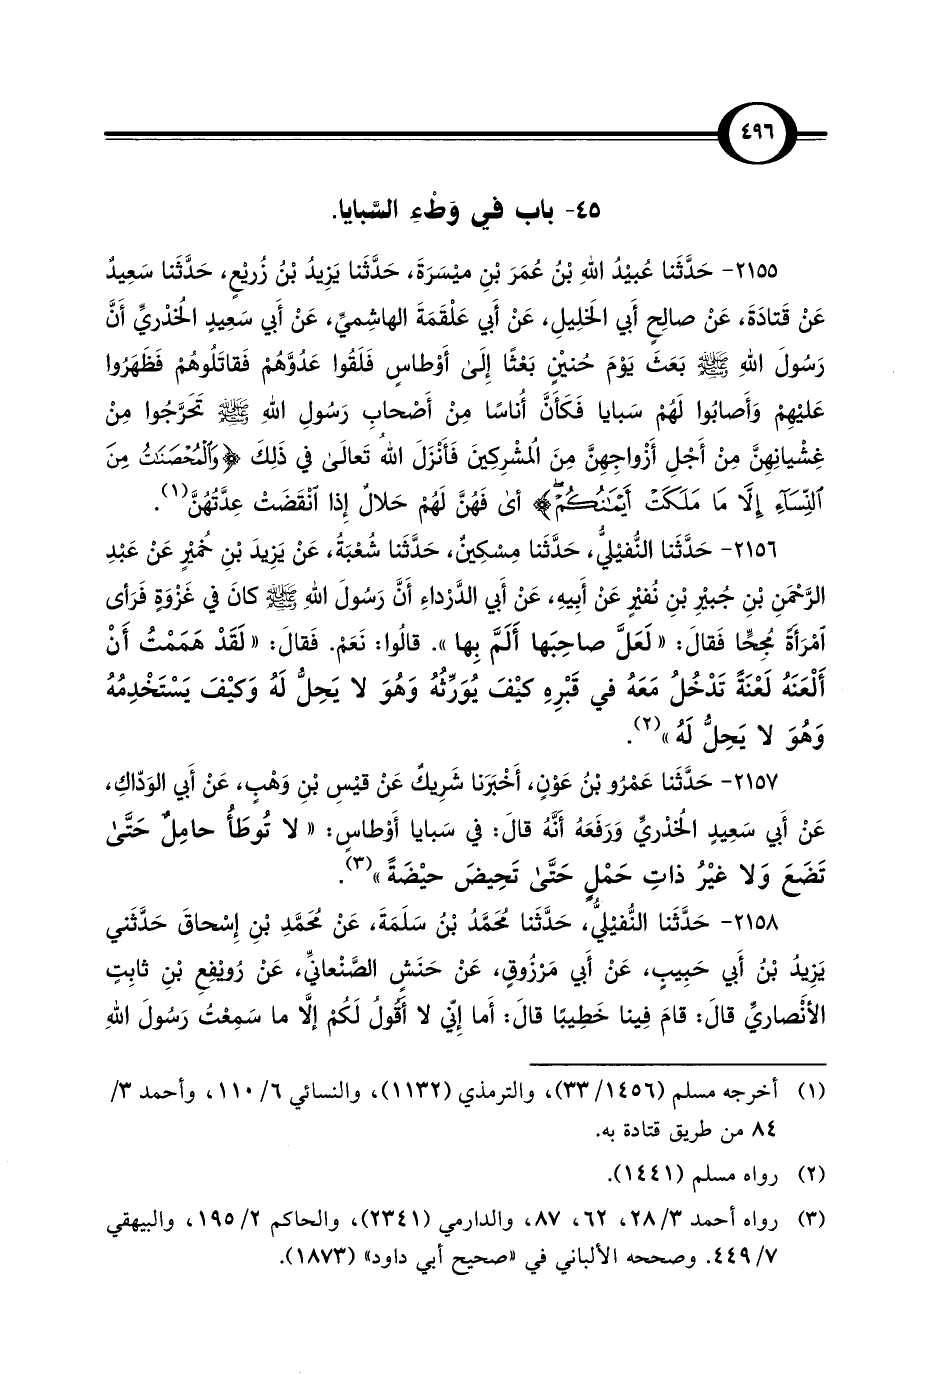 ٤٩٦
٤٥- باب في وَطْءِ السَّبايا.
٢١٥٥- حَدَّثَنا عُبيْدُ اللهِ بْنُ عُمَرَ بْنِ ميْسَرَةَ، حَدَّثَنا يَزِيدُ بْنُ زُريْعٍ، حَدَّثَنا سَعِيدٌ
عَنْ قَتادَةَ، عَنْ صالِحٍ أَبي الخَلِيلِ، عَنْ أَبي عَلْقَمَةَ الهاشِميِّ، عَنْ أَبي سَعِيدٍ الخُدْريِّ أَنَّ
رَسُولَ اللهِ ﷺ بَعَثَ يَوْمَ حُنيْنٍ بَعْثًا إِلَىٰ أَوْطاسٍ فَلَقُوا عَدُوَّهُمْ فَقاتَلُوهُمْ فَظَهَرُوا
عَليْهِمْ وَأَصابُوا لَهُمْ سَبايا فَكَأَنَّ أُناسًا مِنْ أَصْحابِ رَسُولِ اللهِ ﷺ تَحَرَّجُوا مِنْ
غِشْيانِهِنَّ مِنْ أَجْلِ أَزْواجِهِنَّ مِنَ المُشْرِكِينَ فَأَنْزَلَ اللهُ تَعالَىٰ في ذَلِكَ ﴿وَٱلْمُحْصَنَٰتُ مِنَ
ٱلنِّسَآءِ إِلَّا مَا مَلَكَتْ أَيْمَٰنُكُمْ﴾ أىْ فَهُنَّ لَهُمْ حَلالٌ إِذا ٱنْقَضَتْ عِدَّتُهُنَّ(١).
٢١٥٦- حَدَّثَنا النُّفيْليُّ، حَدَّثَنا مِسْكِينٌ، حَدَّثَنا شُعْبَةُ، عَنْ يَزِيدَ بْنِ خُميْرٍ عَنْ عَبْدِ
الرَّحْمَنِ بْنِ جُبيْرِ بْنِ نُفيْرٍ عَنْ أَبِيهِ، عَنْ أَبي الدَّرْداءِ أَنَّ رَسُولَ اللهِ ﷺ كانَ في غَزْوَةٍ فَرَأى
ٱمْرَأَةً مُجِحًّا فَقالَ: « لَعَلَّ صاحِبَها أَلَمَّ بِها ». قالُوا: نَعَمْ. فَقالَ: « لَقَدْ هَمَمْتُ أَنْ
أَلْعَنَهُ لَعْنَةً تَدْخُلُ مَعَهُ في قَبْرِهِ كيْفَ يُوَرِّثُهُ وَهُوَ لا يَحِلُّ لَهُ وَكيْفَ يَسْتَخْدِمُهُ
وَهُوَ لا يَحِلُّ لَهُ »(٢).
٢١٥٧- حَدَّثَنا عَمْرُو بْنُ عَوْنٍ، أَخْبَرَنا شَرِيكٌ عَنْ قيْسِ بْنِ وَهْبٍ، عَنْ أَبي الوَدّاكِ،
عَنْ أَبي سَعِيدٍ الخُدْريِّ وَرَفَعَهُ أَنَّهُ قالَ: في سَبايا أَوْطاسٍ: « لا تُوطَأُ حامِلٌ حَتَّىٰ
تَضَعَ وَلا غيْرُ ذاتِ حَمْلٍ حَتَّىٰ تَحِيضَ حيْضَةً »(٣).
٢١٥٨- حَدَّثَنا النُّفيْليُّ، حَدَّثَنا مُحَمَّدُ بْنُ سَلَمَةَ، عَنْ مُحَمَّدِ بْنِ إِسْحاقَ حَدَّثَني
يَزِيدُ بْنُ أَبي حَبِيبٍ، عَنْ أَبي مَرْزُوقٍ، عَنْ حَنَشٍ الصَّنْعانيِّ، عَنْ رُويْفِعِ بْنِ ثابِتٍ
الأَنْصاريِّ قالَ: قامَ فِينا خَطِيبًا قالَ: أَما إِنّي لا أَقُولُ لَكُمْ إِلَّا ما سَمِعْتُ رَسُولَ اللهِ
(١) أخرجه مسلم (١٤٥٦/ ٣٣)، والترمذي (١١٣٢)، والنسائي ٦/ ١١٠، وأحمد ٣/
٨٤ من طريق قتادة به.
(٢) رواه مسلم (١٤٤١).
(٣) رواه أحمد ٣/ ٢٨، ٦٢، ٨٧، والدارمي (٢٣٤١)، والحاكم ٢/ ١٩٥، والبيهقي
٧/ ٤٤٩. وصححه الألباني في «صحيح أبي داود» (١٨٧٣).